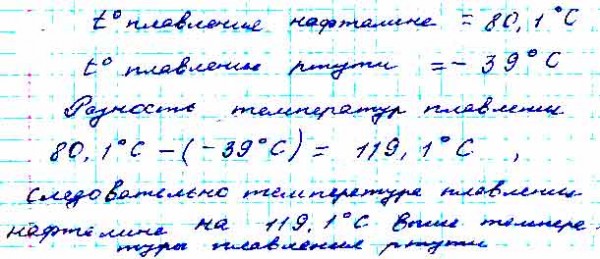 t° плавления нафталина = 80,1°C
t° плавления ртути = - 39°C
Разность температур плавления
80,1°C - (-39°C) = 119,1°C ,
следовательно температура плавления
нафталина на 119,1°C выше темпера
туры плавления ртути